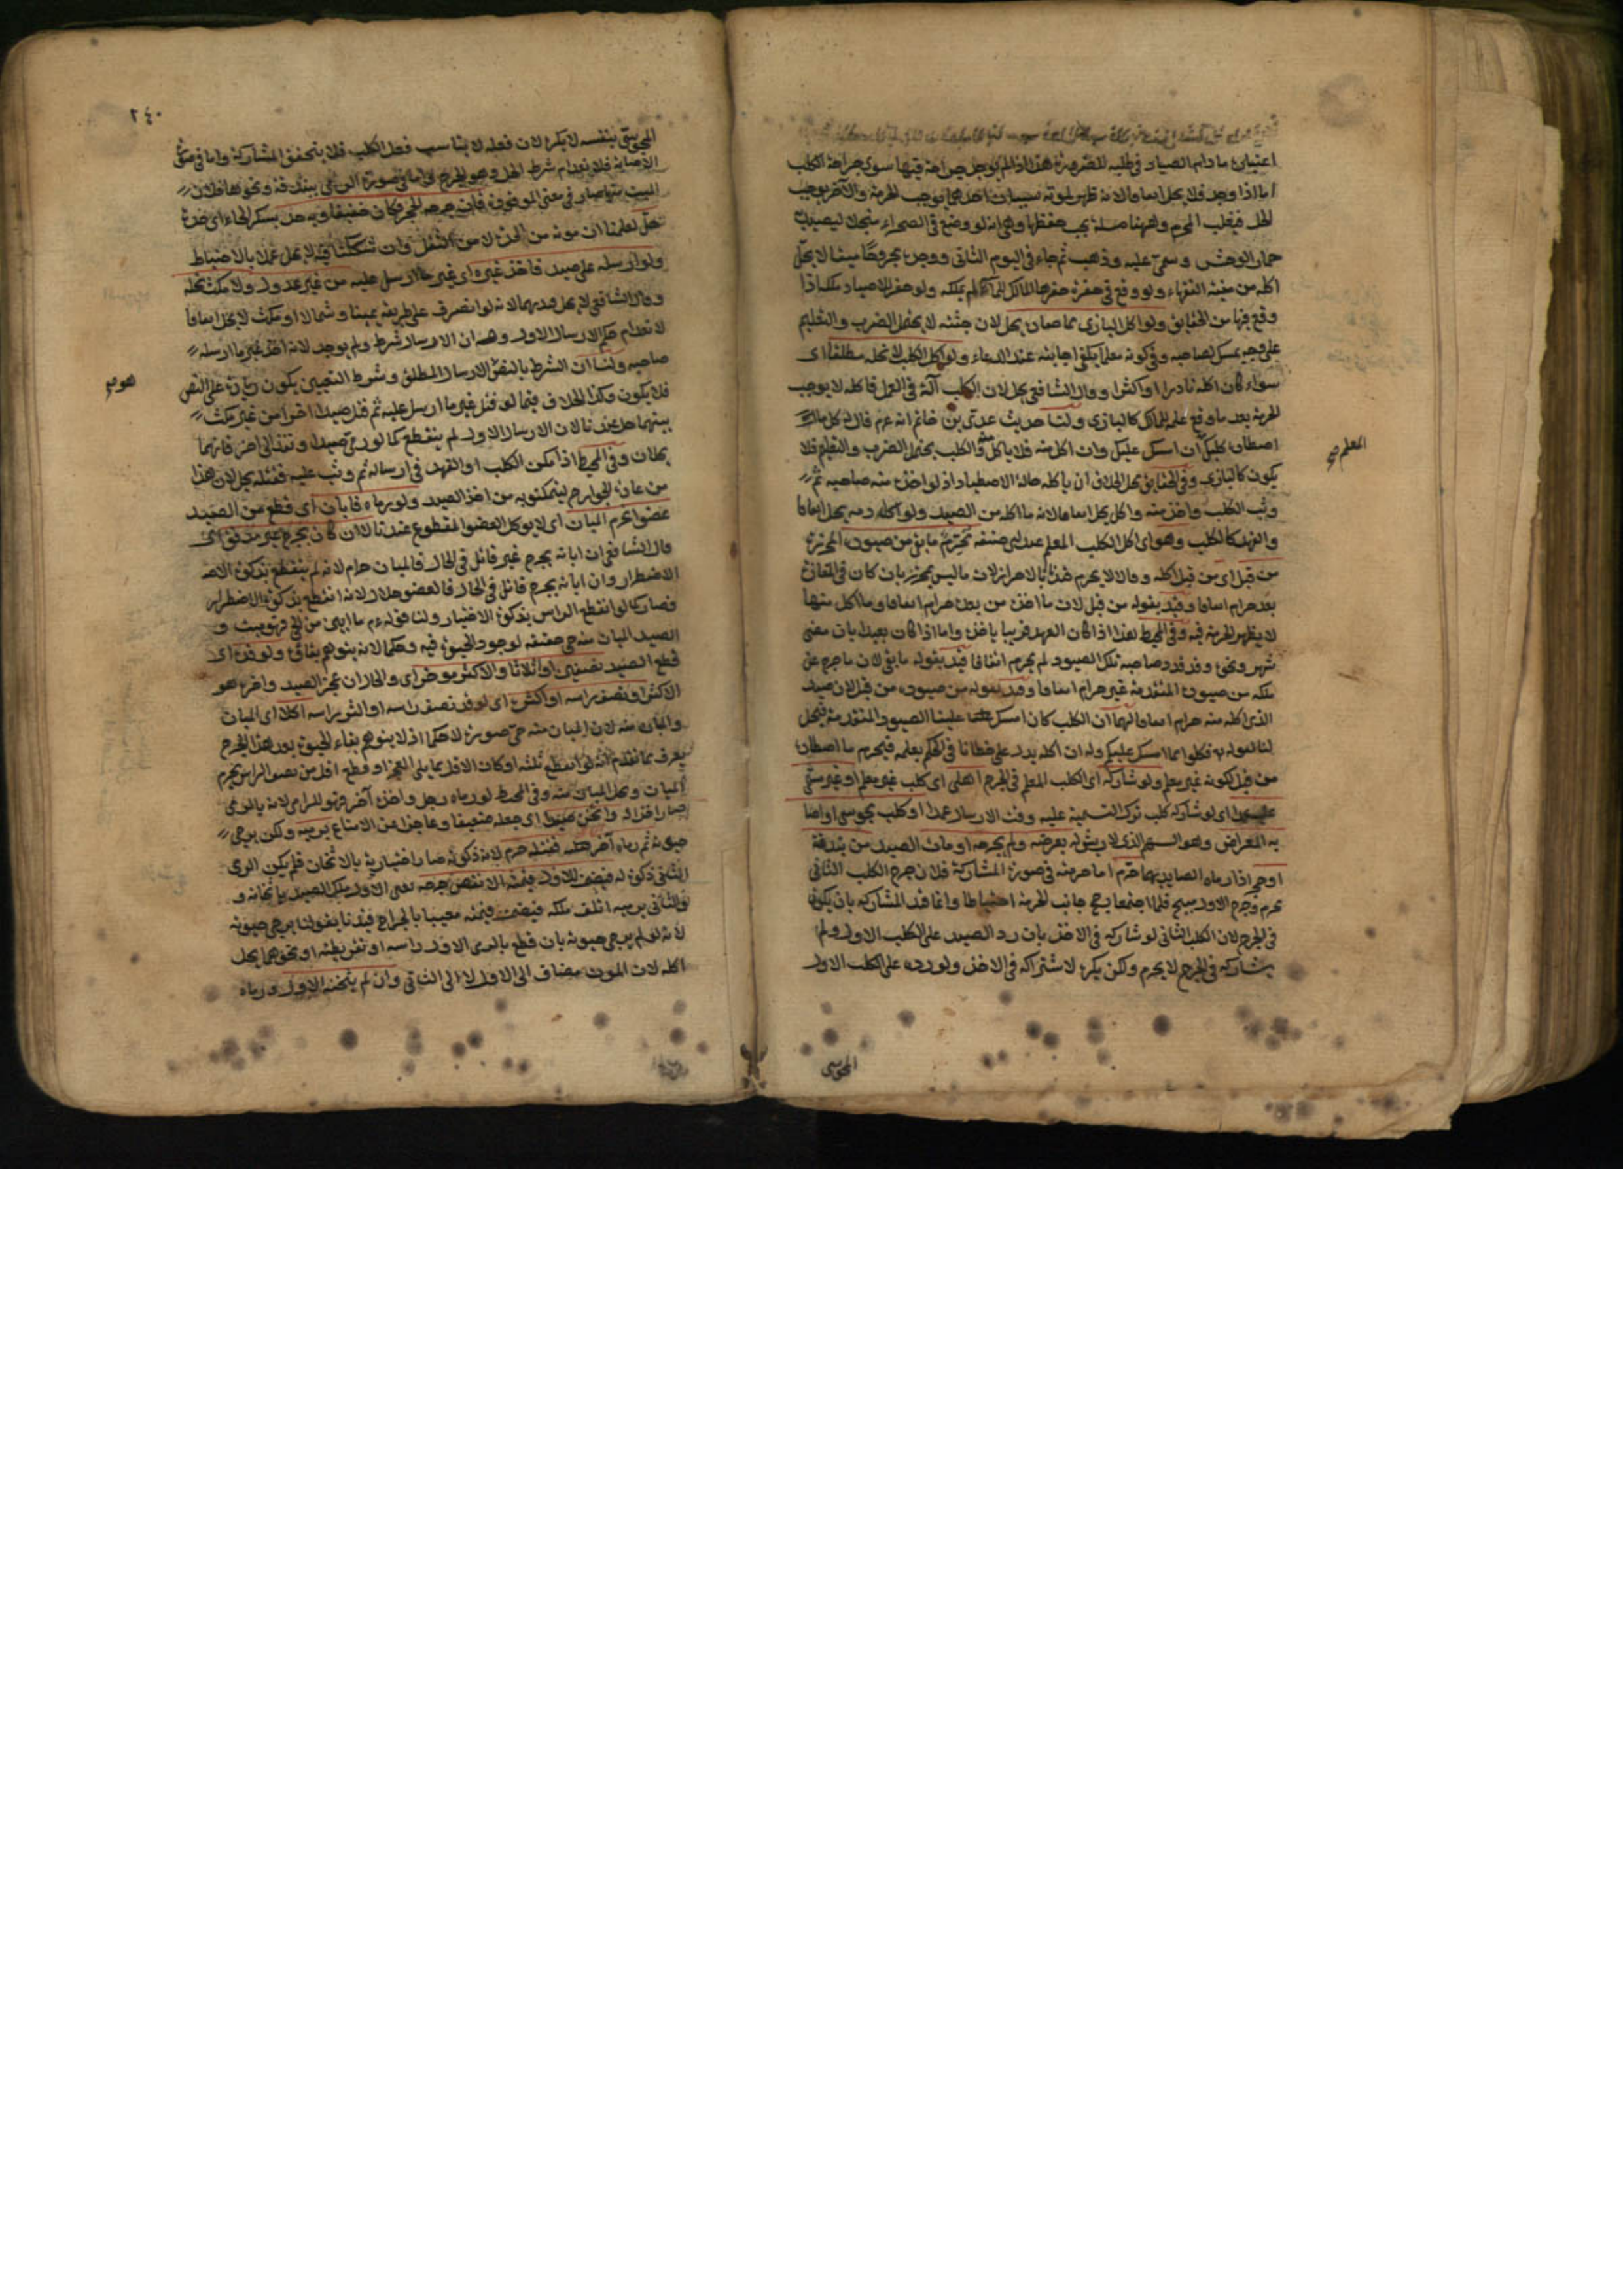 اعتباره ما دام الصياد في طلبه للضرورة هذا اذا لم يوجد جراحة فيها سوى جراحة الكلب
اما اذا وجد فلا يحل اتفاقا لانه ظهر لموته سببان احدهما يوجب الحرمة والآخر يوجب
الحل فيغلب المحرم وههنا مسئلة يجب حفظها وهي انه لو وضع في الصحراء منجلا ليصيد به
حمار الوحش وسمى عليه وذهب ثم جاء في اليوم الثاني ووجده مجروحا ميتا لا يحل
اكله من منية الفقهاء ولو وقع في حفرة حفرها المالك للماء لم يملكه ولو حفر للاصطياد ملك اذا
وقع فيها من الحقايق ولو اكل البازي مما صاده يحل لان جثته لا يحتمل الضرب والتعليم
على وجه يمسك لصاحبه وفي كونه معلما يكفي اجابته عند الدعاء ولو اكل الكلب لا نحله مطلقا اى
سواء كان اكله نادرا او كثيرا وقال الشافعي يحل لان الكلب آلة في العمل فاكله لا يوجب
الحرمة بعد ما وقع علمه للمالك كالبازي ولنا حديث عدي بن حاتم انه عم قال له كل مما
اصطاد كلبك ان امسك عليك وان اكل منه فلا تأكل والكلب يحتمل الضرب والتعليم فلا
المعلم صح
يكون كالبازي وفي الحقايق محل الخلاف ان ياكله حالة الاصطياد اذ لو اخذه منه صاحبه ثم
وثب الكلب واخذ منه واكل يحل اتفاقا لانه ما اكله من الصيد ولو اكله دمه يحل اتفاقا
والفهد كالكلب وهو اى اكل الكلب المعلم عند ابى حنيفة تحريم ما بقي من صيوده المحرزة
من قبل اى من قبل اكله وقالا لا يحرم قيدنا بالاحراز لان ما ليس بمحرز بان كان في المفازة
بعد حرام اتفاقا وقيد بقوله من قبل لان ما اخذه من بعده حرام اتفاقا وما اكل منها
لا يظهر الحرمة فيه وفي المحيط هذا اذا كان العهد قريبا باخذه واما اذا كان بعيدا بان مضى
شهر ونحوه وقد قدد صاحبه تلك الصيود لم يحرم اتفاقا قيد بقوله ما بقي لان ما خرج عن
ملكه من صيوده المتقدمة غير حرام اتفاقا وقيد بقوله من صيوده من قبل لان صيد
الذي اكله منه حرام اتفاقا لهما ان الكلب كان امسك علينا الصيود المتقدمة فيحل
لنا لقوله تع فكلوا مما امسكن عليكم وله ان اكله يدل على خطائنا في الحكم بعلمه فيحرم ما اصطاده
من قبل لكونه غير معلم ولو شاركه اى الكلب المعلم في الجرح اهلي اى كلب غير معلم او غير مسمى
عليه اى لو شاركه كلب ترك التسمية عليه وقت الارسال عمدا او كلب مجوسي او اصا
به المعراض وهو السهم الذي لا ريش له بعرضه ولم يجرحه او مات الصيد من بندقة
او حجر اذا رماه الصايد بها حرم اما حرمته في صورة المشاركة فلان جرح الكلب الثاني
محرم وجرح الاول مبيح فلما اجتمعا رجح جانب الحرمة احتياطا وانما قيد المشاركة بان يكون
في الجرح لان الكلب الثاني لو شاركه في الاخذ بان رد الصيد على الكلب الاول ولم
يشاركه في الجرح لا يحرم ولكن يكره لاشتراكه في الاخذ ولو رده على الكلب الاول
المجوسى
٢٤٠
المجوسى بنفسه لا يكره لان فعله لا يناسب فعل الكلب فلا يتحقق المشاركة واما في صورة
الاصابة فلانعدام شرط الحل وهو الجرح واما في صورة الرمي ببندقة ونحوها فلان
الميت بها صار في معنى الموقوذة فان جرحه الحجر وكان خفيفا وبه حد بسكر الحاء اى حدة
حل لعلمنا ان موته من الحدة لا من الثقل وان شككنا فيه لا يحل عملا بالاحتياط
ولو ارسله على صيد فاخذ غيره اى غير ما ارسل عليه من غير عدول ولا مكث نحله
وقال الشافعي لا يحل قيد بهما لانه لو انصرف على طريقه يمينا وشمالا او مكث لا يحل اتفاقا
لانعدام حكم الارسال الاول وهذا ان الارسال شرط ولم يوجد لانه اخذ غير ما ارسله
صاحبه ولنا ان الشرط بالنص الارسال المطلق وشرط التعيين يكون زيادة على النص
هو صح
فلا يكون وكذا الخلاف فيما لو قتل غير ما ارسل عليه ثم قتل صيدا آخر من غير مكث
بينهما حل عندنا لان الارسال الاول لم ينقطع كما لو رمى صيدا ونفذ الى آخر فانهما
يحلان وفي المحيط اذا مكن الكلب او الفهد في ارساله ثم وثب عليه فقتله يحل لان هذا
من عادة الجوارح ليتمكنوا به من اخذ الصيد ولو رماه فابان اى قطع من الصيد
عضوا نحرم المبان اى لا يوكل العضو المقطوع عندنا لا ان كان بجرح غير مدفف اى
قال الشافعي ان ابانه بجرح غير قاتل في الحال فالمبان حرام لانه لم ينقطع بذكوة الا
الاضطرار وان ابانه بجرح قاتل في الحال فالعضو حلال لانه انقطع بذكوة الاضطرار
فصار كما لو انقطع الراس بذكوة الاختيار ولنا قوله عم ما ابين من الحي فهو ميت و
الصيد المبان منه حي حقيقة لوجود الحيوة فيه وحكما لانه يتوهم بقاؤه ولو قده اى
قطع الصيد نصفين او اثلاثا والاكثر مؤخر اى والحال ان عجز الصيد واخره هو
الاكثر او نصف راسه او اكثره اى لو قد نصف راسه او اكثر راسه اكلا اى المبان
والمبان منه لان المبان منه حي صورة لا حكما اذ لا يتوهم بقاء الحيوة بعد هذا الجرح
يعرف مما تقدم انه لو انقطع ثلثه او كان الاقل مما يلى العجز او قطع اقل من نصف الراس يحرم
المبان ويحل المبان منه وفي المحيط لو رماه رجل واخذه آخر فهو للرامي لانه بالرمي
صار اخذاله واثخن صيدا اى جعله ضعيفا وعاجزا عن الامتناع برميه ولكن يرجى
حيوته ثم رماه آخر فقتله حرم لانه ذكوته صار اختيارية بالاثخان فلم يكن الرمى
الثاني ذكوة له فيضمن للاول قيمته الا نقص جرحه يعنى الاول ملك الصيد باثخانه و
والثاني برميه اتلف ملكه فيضمن قيمته معيبا بالجراح قيدنا بقولنا يرجى حيوته
لانه لو لم يرجى حيوته بان قطع بالرمى الاول راسه او نقر بطنه او نحوهما يحل
اكله لان الموت مضاف الى الاول لا الى الثاني وان لم يثخنه الاول ورماه